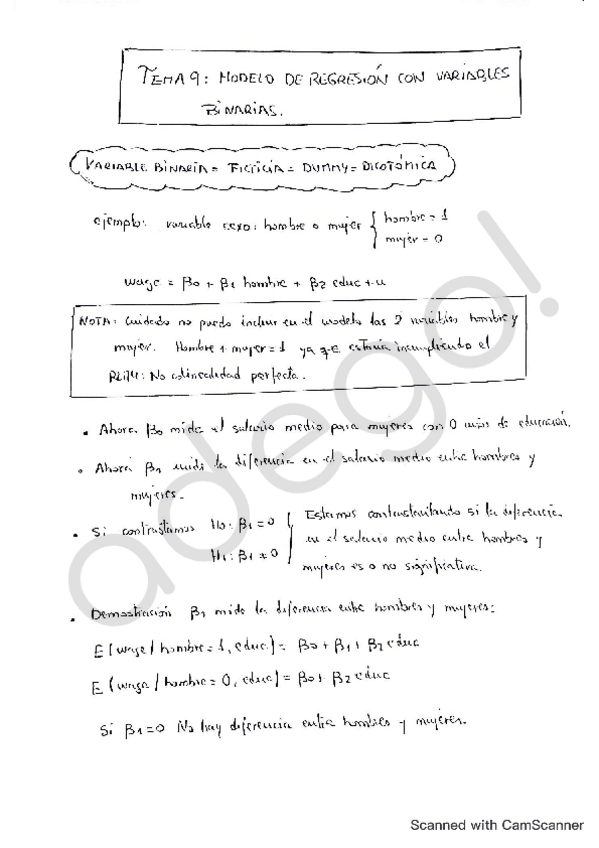 TEMA 9: MODELO DE REGRESIÓN CON VARIABLES
BINARIAS.
VARIABLE BINARIA = FICTICIA = DUMMY = DICOTÓMICA
ejemplo: variable sexo: hombre o mujer { hombre = 1
mujer = 0
wage = β0 + β1 hombre + β2 educ + u
NOTA: Cuidado no puedo incluir en el modelo las 2 variables hombre y
mujer. Hombre + mujer = 1 ya q̄ estaría incumpliendo el
RLM4: No colinealidad perfecta.
• Ahora β0 mide el salario medio para mujeres con 0 años de educación.
• Ahora β1 mide la diferencia en el salario medio entre hombres y
mujeres.
• Si contrastamos H0: β1 = 0 { Estamos contrastando si la diferencia
H1: β1 ≠ 0 en el salario medio entre hombres y
mujeres es o no significativa.
• Demostración β1 mide la diferencia entre hombres y mujeres:
E(wage/hombre = 1, educ) = β0 + β1 + β2 educ
E(wage/hombre = 0, educ) = β0 + β2 educ
Si β1 = 0 No hay diferencia entre hombres y mujeres.
adego!
Scanned with CamScanner